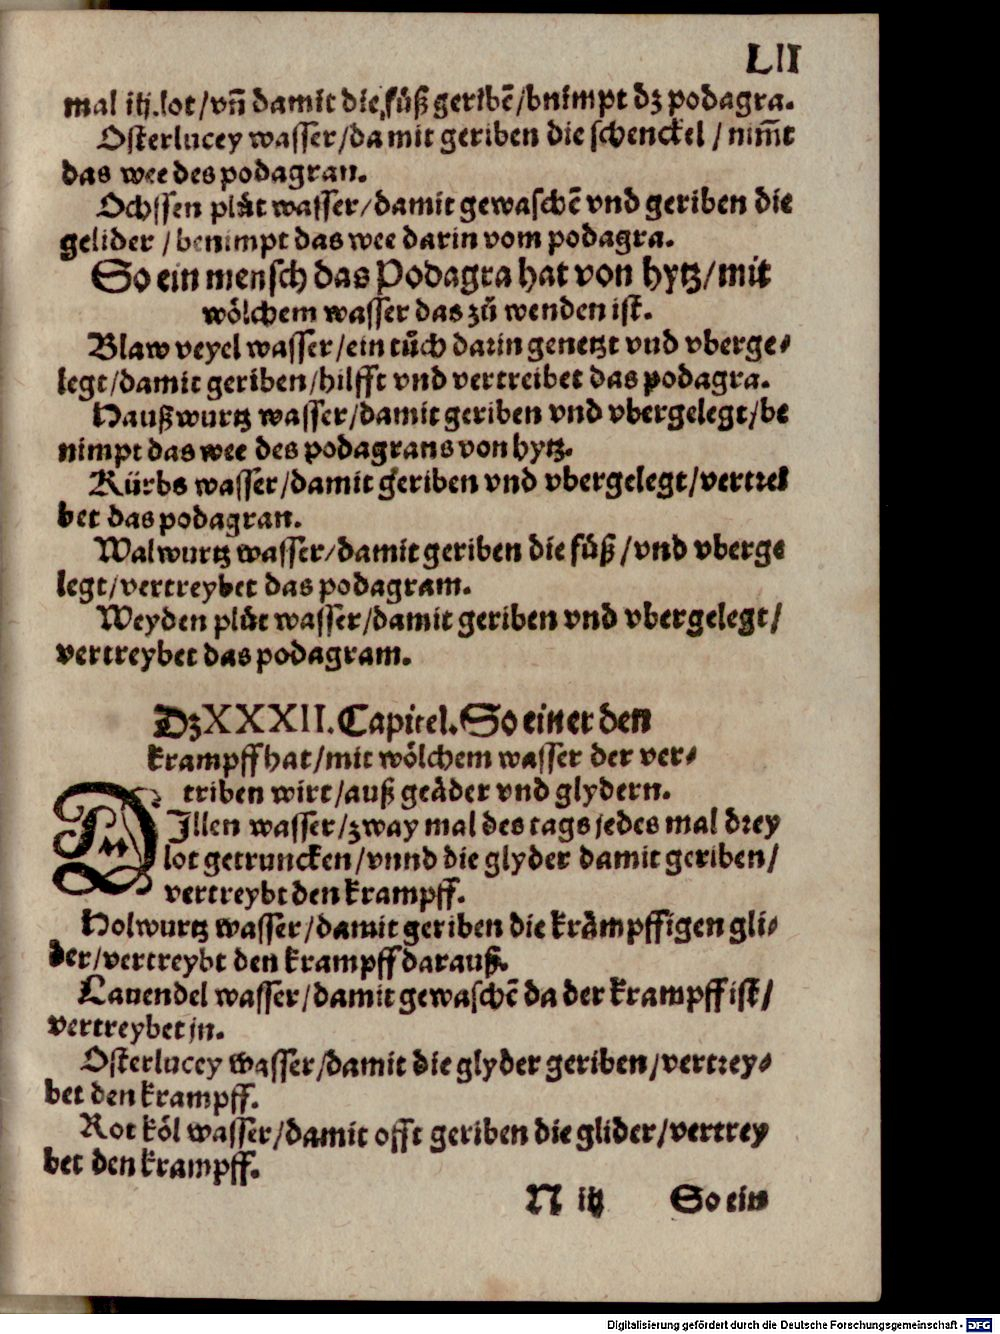 LII
mal iij.lot/vn̄ damit die fůß geribē/bnimpt dz podagra.
Osterlucey wasser/damit geriben die schenckel/nim̄t
das wee des podagran.
Ochssen plůt wasser/damit gewaschē vnd geriben die
gelider/benimpt das wee darin vom podagra.
So ein mensch das Podagra hat von hytz/mit
wölchem wasser das zů wenden ist.
Blaw veyel wasser/ein tůch darin genetzt vnd vberge⸗
legt/damit geriben/hilfft vnd vertreibet das podagra.
Haußwurtz wasser/damit geriben vnd vbergelegt/be
nimpt das wee des podagrans von hytz.
Kürbs wasser/damit geriben vnd vbergelegt/vertrei
bet das podagran.
Walwurtz wasser/damit geriben die fůß/vnd vberge
legt/vertreybet das podagram.
Weyden plůt wasser/damit geriben vnd vbergelegt/
vertreybet das podagram.
Dz XXXII. Capitel. So einer den
krampff hat/mit wölchem wasser der ver⸗
triben wirt/auß geäder vnd glydern.
DIllen wasser/zway mal des tags jedes mal drey
lot getruncken/vnnd die glyder damit geriben/
vertreybt den krampff.
Holwurtz wasser/damit geriben die krämpffigen gli⸗
der/vertreybt den krampff darauß.
Lauendel wasser/damit gewaschē da der krampff ist/
vertreybet jn.
Osterlucey wasser/damit die glyder geriben/vertrey⸗
bet den krampff.
Rot köl wasser/damit offt geriben die glider/vertrey
bet den krampff.
N iij So ein
Digitalisierung gefördert durch die Deutsche Forschungsgemeinschaft - DFG